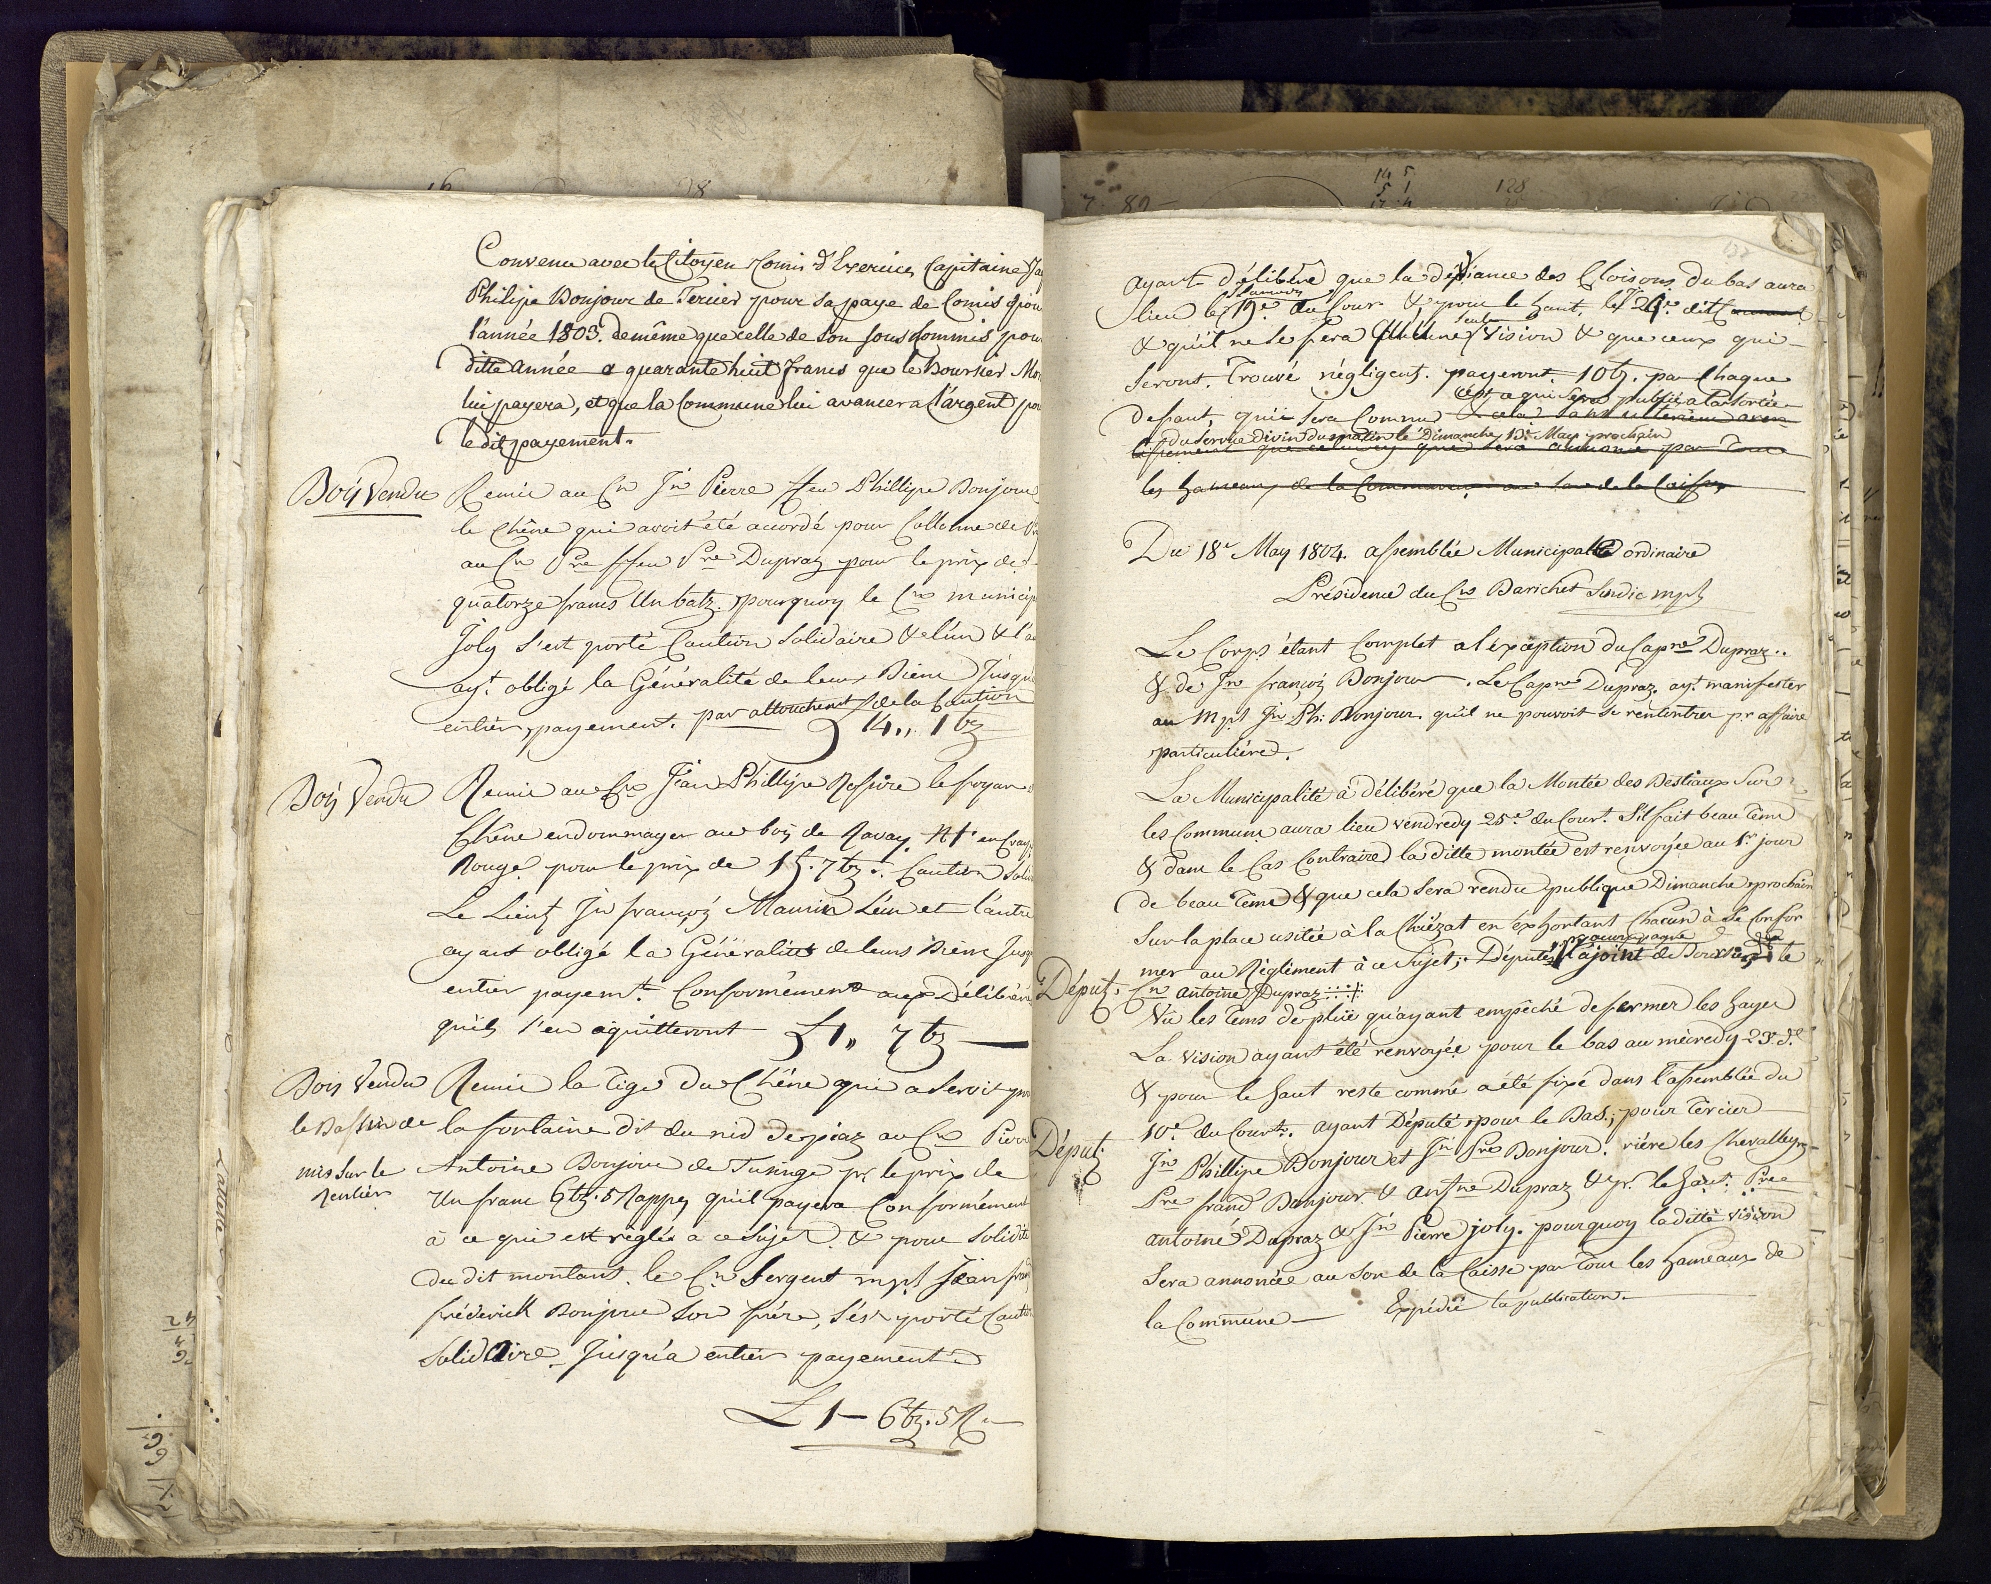 Convenu avec le Citoyen Comis d'Exercice, Capitaine
Philipe Bonjour de Tercier pour sa paye de Comis pour
l'année 1803. de même que celle de son sous Commis pour
ditte année a quarante huit francs que le Boursier
lui payera, et que la Commune lui avancera l'argent
le dit payement.
Bois Vendu
Remis au Cn Jn Pierre ffeu Phillipe Bonjour
le Chêne qui avoit été accordé pour Collonne de
au Cn Pre ffeu Pre Dupraz pour le prix de
quatorze francs Un batz. pourquoy le Cn
Joly s'est porté Caution Solidaire & l'un & l'a
ayt obligé la Généralité de leurs Biens Jusqu
entier payement. par attouchement de la Caution
14,, 1 bz
Bois Vendu
Remis au Cn Jean Phillipe le foyard
Chêne endommager au bois de Ravay. en
Rouge pour le prix de 1 f. 7 bz. Caution
Le Lieut Jn françois Mamin L'un et l'autre
ayant obligé la Généralité de leurs Biens
entier payemt. Conformément aux
qu'ils s'en aquitteront L 1,, 7 bz
Bois Vendu
le Bassin de
mis sur le
Rentier
Remis la Tige du Chêne qui a servit
la fontaine dit du nid au Cn Pierre
Antoine Bonjour de Tusinge pr le prix de
Un franc 6 bz. 5 Rappes qu'il payera Conformément
à ce qui est réglés a ce sujet. & pour
du dit montant. le Cn Sergent mpl Jean
fréderick Bonjour son frère, s'ést porté
Solidaire. Jusqu'a entier payement.
L 1 — 6 bz. 5 R.
ayant délibéré que la déffiance des Cloisons du bas aura
lieu le 19e. du Cour & pour le haut, le 26e. dit
& qu'il ne se fera qu'une seule Vision & que ceux qui
seront. Trouvé négligent. payeront. 10 bz. par Chaque
defaut,
c'est a qui sera publié a la sortie
du service divin du matin le Dimanche 13e. May prochain
les hameaux de la Commune au Son de la Caisse
Du 18e May 1804. assemblée Municipalle ordinaire
Présidence du Cn Barichet Sindic mpl
Le Corps étant Complet a l'exception du Capne Dupraz..
& de Jn françois Bonjour. Le Capne Dupraz. ayt. manifester
au Mpl Jn Ph: Bonjour. qu'il ne pouvoit se rencontrer pr affaire
particuliére.
La Municipalité à délibéré que la Montée des Bestiaux Sur
les Communs aura lieu vendredy 25e. du Court. S'il fait beau Tems
& dans le Cas Contraire la ditte montée est renvoyée au 1r. jour
de beau Tems & que cela sera rendu publique Dimanche prochain
Sur la place usitée à la Chiézat en exhortant Chacun à se Confor
mer au Règlement à ce Sujet; Députés l'ajoint de le
Députn.
Cn Antoine Dupraz
Vû les Tems de pluie qu'ayant empêché de fermer les hayes
La vision ayant été renvoyée pour le bas au mécredy 23. de
& pour le haut reste comme a été fixé dans l'assemblée du
10e. du Court. ayant Député pour le Bas, pour Tercier
Députn.
Jn Phillipe Bonjour et Jn Fre Bonjour. riére les Chevalleyres
Pre frans Bonjour & Antne Dupraz & pr. le haut. Pre
Antoine Dupraz & Jn Pierre joly. pourquoy la ditte vision
Sera annoncée au Son de la Caisse par tous les hameaux de
la Commune — Expédié la publication.